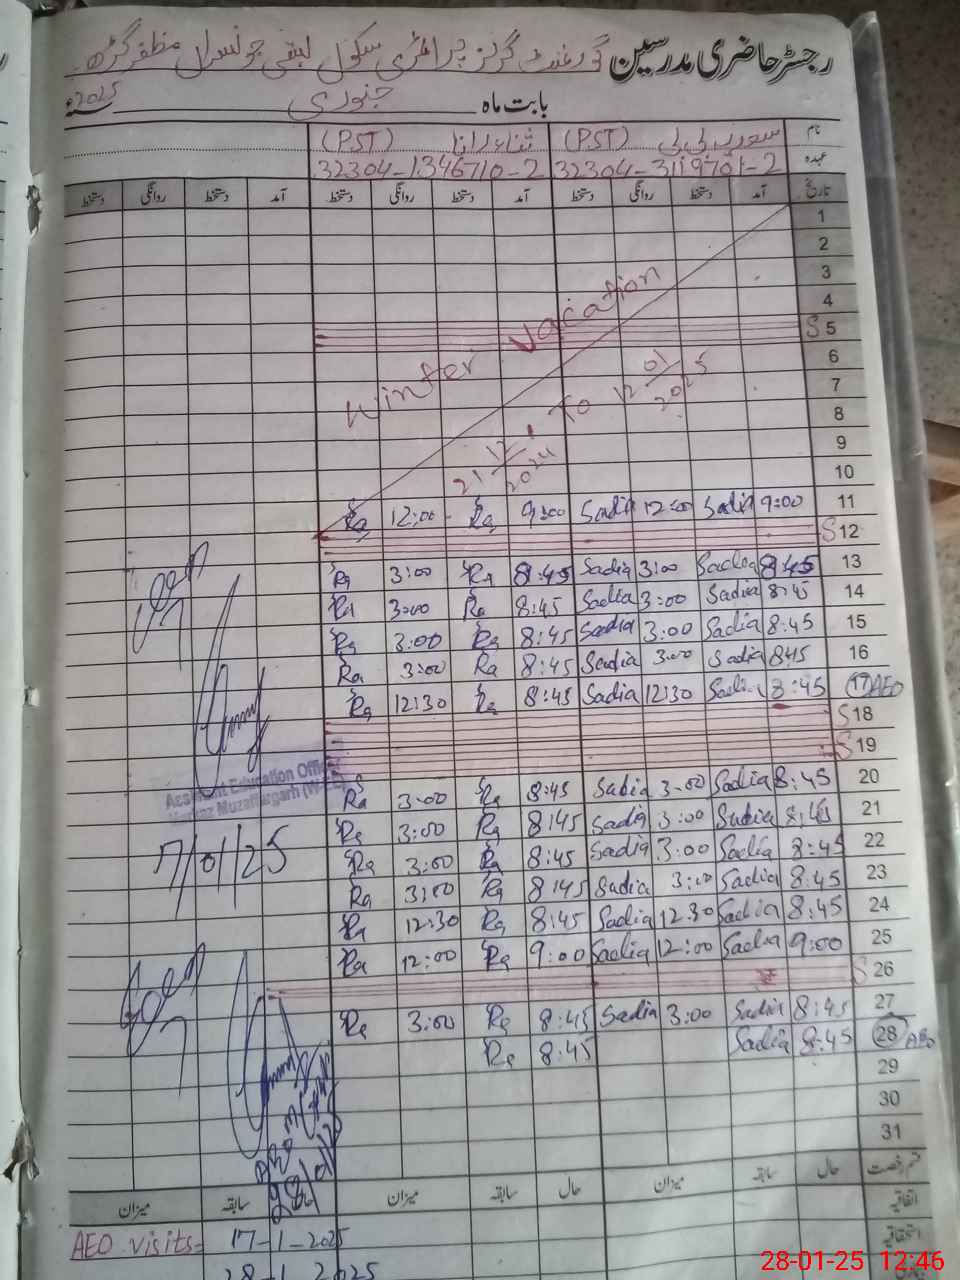 رجسٹر حاضری مدرسین گورنمنٹ گرلز پرائمری سکول مظفر گڑھ
بابت ماہ جنوری 2025ء
نام سعدیہ بی بی (PST) (PST)
عہدہ 32304-3119701-2 32304-1346710-2
تاریخ آمد دستخط روانگی دستخط آمد دستخط روانگی دستخط آمد دستخط روانگی دستخط
1
2
3
4
S 5
6
7
8
9
10
Winter Vacation
21 12/2024 To 12 01/2025
11 9:00 Sadia 12:00 Sadia 9:00 Ra 12:00 Ra
S 12
13 8:45 Sadia 3:00 Sadia 8:45 Ra 3:00 Ra
14 8:45 Sadia 3:00 Sadia 8:45 Ra 3:00 Ra
15 8:45 Sadia 3:00 Sadia 8:45 Ra 3:00 Ra
16 845 Sadia 3:00 Sadia 8:45 Ra 3:00 Ra
17 AEO 8:45 Sadia 12:30 Sadia 8:45 Ra 12:30 Ra
S 18
S 19
20 8:45 Sadia 3:00 Sadia 8:45 Ra 3:00 Ra
21 8:45 Sadia 3:00 Sadia 8:45 Ra 3:00 Ra
22 8:45 Sadia 3:00 Sadia 8:45 Ra 3:00 Ra
23 8:45 Sadia 3:00 Sadia 8:45 Ra 3:00 Ra
24 8:45 Sadia 12:30 Sadia 8:45 Ra 12:30 Ra
25 9:00 Sadia 12:00 Sadia 9:00 Ra 12:00 Ra
S 26
27 8:45 Sadia 3:00 Sadia 8:45 Ra 3:00 Ra
28 AEO 8:45 Sadia 8:45 Ra
29
30
31
Seen
Assistant Education Officer
Markaz Muzaffargarh (W-EE)
17/01/25
Seen
قسم رخصت حال سابقہ میزان حال سابقہ میزان سابقہ میزان
اتفاقیہ
استحقاقیہ
AEO visits- 17-1-2025
28-1-2025
28-01-25 12:46